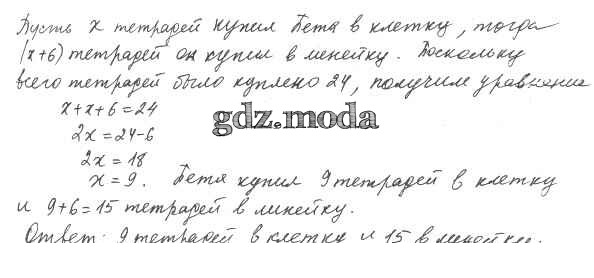 Пусть x тетрадей купил Петя в клетку, тогда
(x+6) тетрадей он купил в линейку. Поскольку
всего тетрадей было куплено 24, получим уравнение
x+x+6=24
gdz.moda
2x=24-6
2x=18
x=9. Петя купил 9 тетрадей в клетку
и 9+6=15 тетрадей в линейку.
Ответ: 9 тетрадей в клетку и 15 в линейку.